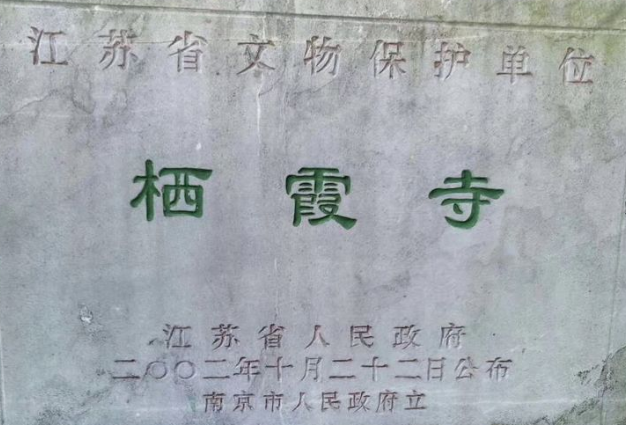 江苏省文物保护单位
栖霞寺
江苏省人民政府
二〇〇二年十月二十二日公布
南京市人民政府立